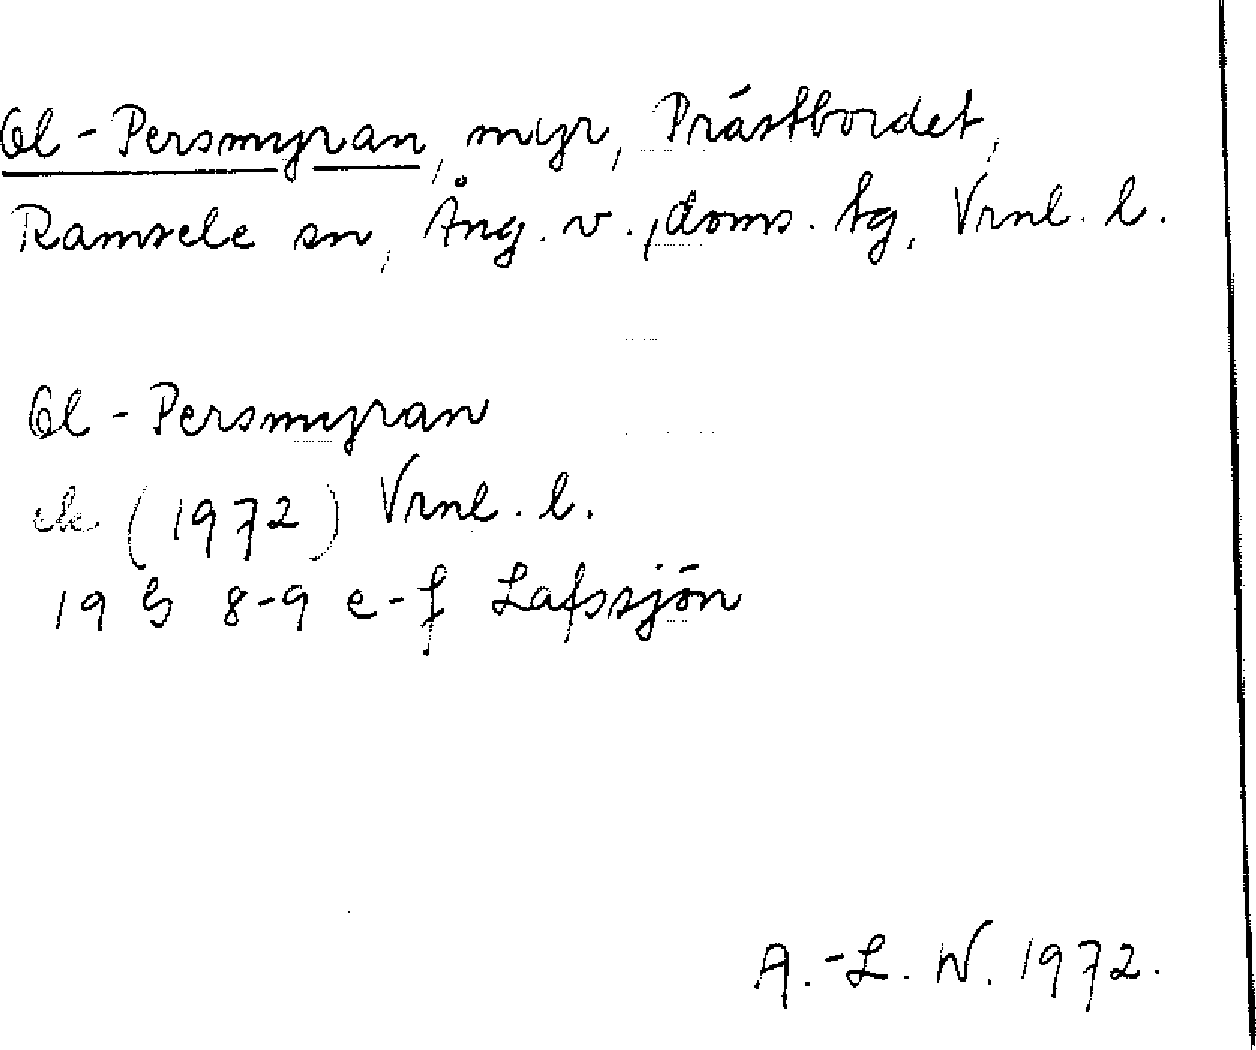 Ol-Persmyran, myr, Prästbordet,
Ramsele sn, Ång. v., doms. tg, Vrnl. l.
Ol-Persmyran
ek (1972) Vrnl. l.
19 G 8-9 e-f Lafssjön
A.-L. W. 1972.